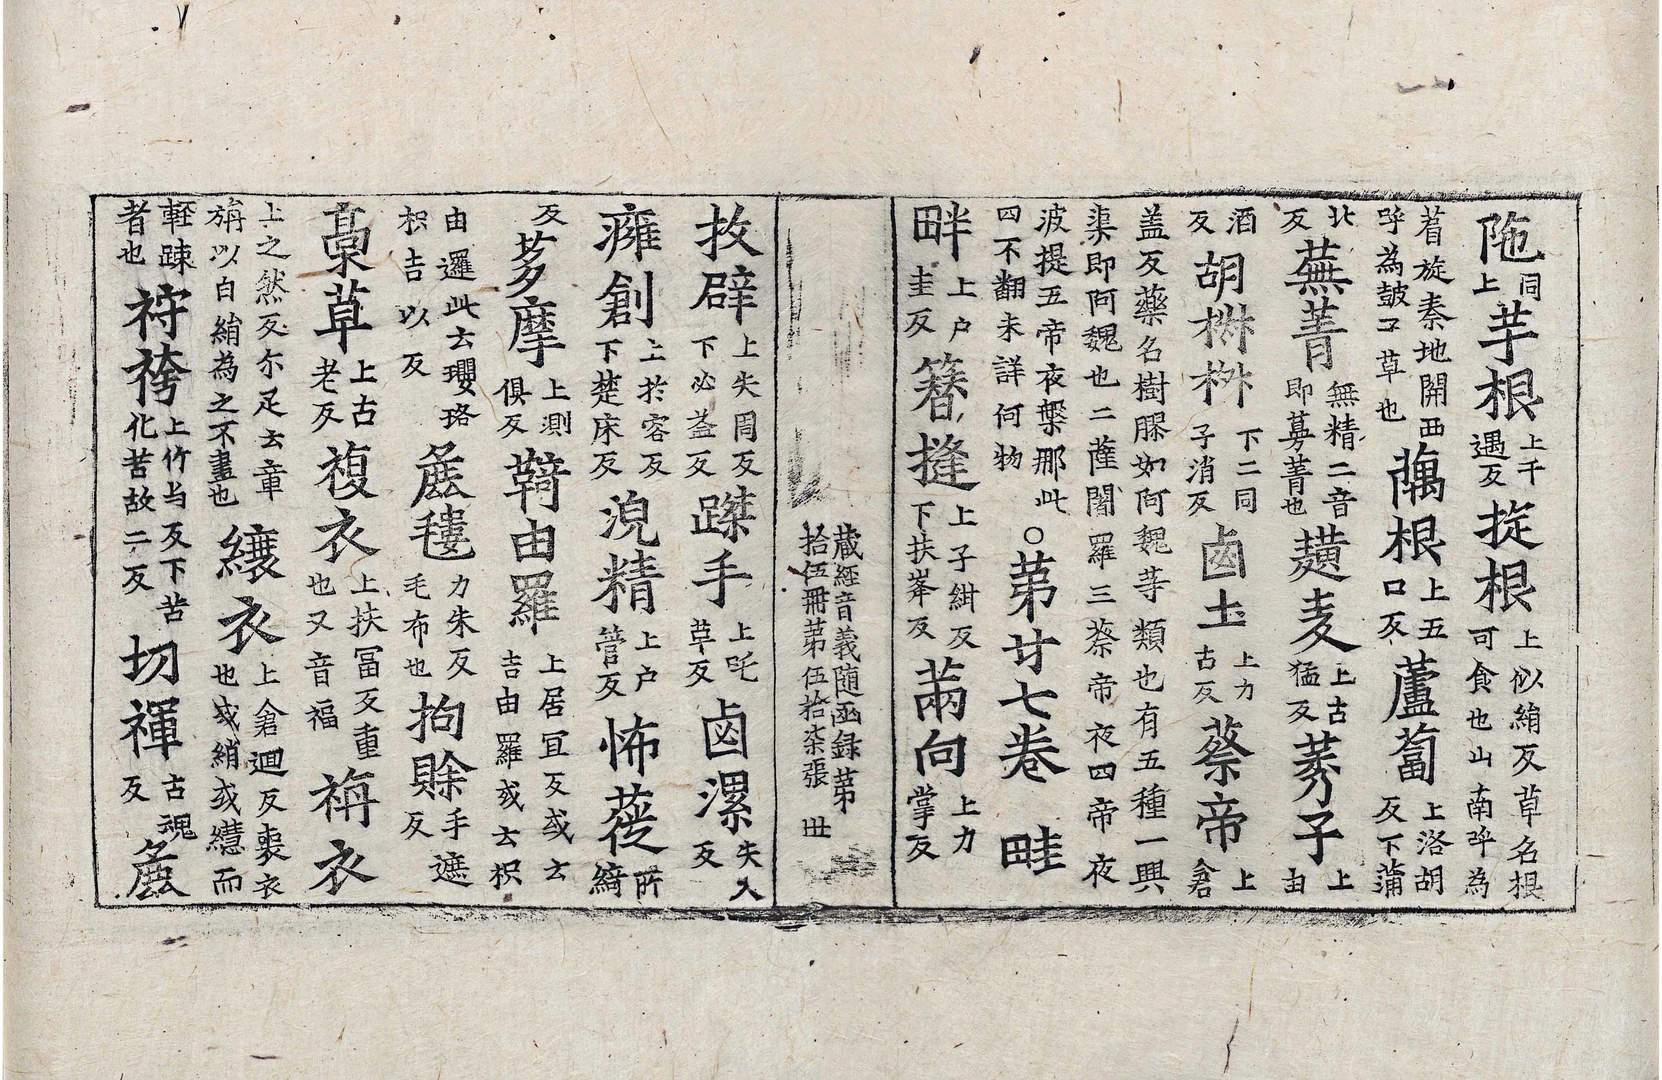 陁同上芋根上千遇反㨁根上似絹反草名根可食也山南呼為
着旋秦地開西呼為鼓子草也藕根上五口反蘆蔔上洛胡反下蒲
北反蕪菁無精二音即蔓菁也䵃麦上古猛反莠子上由
酒反胡椕椒下二同子消反鹵土上力古反蔡帝上倉
盖反藥名樹膠如阿魏䓁類也有五種一興
渠即阿魏也二薩闍羅三蔡帝夜四帝夜
波提五帝夜槃那此四不翻未詳何物〇苐廿七卷 畦
畔上户圭反簪縫上子紺反下扶峯反兩向上力掌反
蔵經音義随函録苐
拾伍冊苐伍拾柒張 丗
㧊躃上失周反下必益反蹀手上吒草反鹵漯失入反
癰創上扵容反下楚床反涀精上户管反怖蓰所綺
反芗摩上測俱反鞫由羅上居冝反或云吉由羅或云枳
由邏此云瓔珞枳吉以反㲚𣯫力朱反毛布也拘賒手遮反
藁草上古老反複衣上扶冨反重也又音福裲衣
上之然反尔疋云章旃以白絹為之不畫也縗衣上倉迴反喪衣也或綃或繐而
輊踈者也袸袴上竹与反下苦化苦故二反切褌古魂反麁